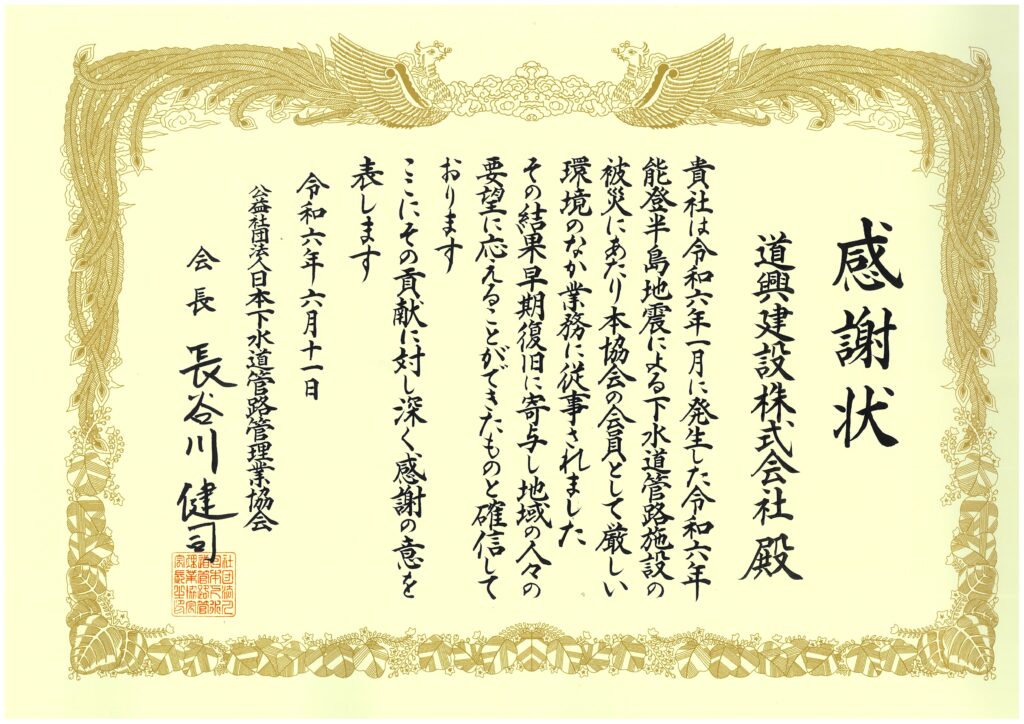 感謝状
道興建設株式会社 殿
貴社は令和六年一月に発生した令和六年
能登半島地震による下水道管路施設の
被災にあたり本協会の会員として厳しい
環境のなか業務に従事されました
その結果早期復旧に寄与し地域の人々の
要望に応えることができたものと確信して
おります
ここにその貢献に対し深く感謝の意を
表します
令和六年 六月十一日
公益社団法人日本下水道管路管理業協会
会長 長谷川健司